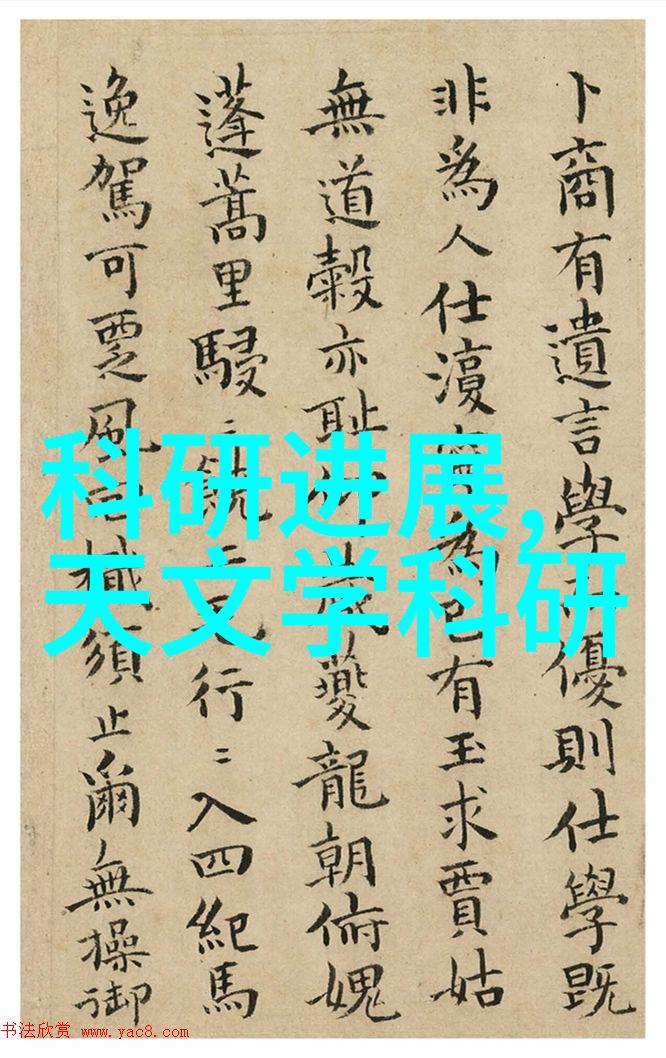 卜商有遺言學優則仕學既
非為人仕為己有玉求賈姑
無道穀亦耻歲夔龍朝俯媿
蓬蒿里駸〻行〻入四紀馬
逸駕可覂風檝須止爾無操御
科研进展,
天文学科研
书法欣赏 www.yac8.com